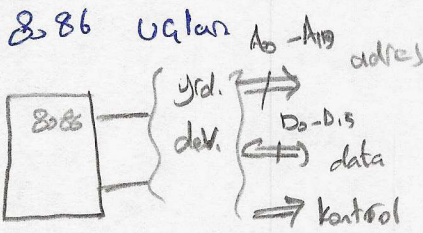 8086 uçları
A0-A19 adres
8086 yrd. dev.
D0-D15 data
kontrol